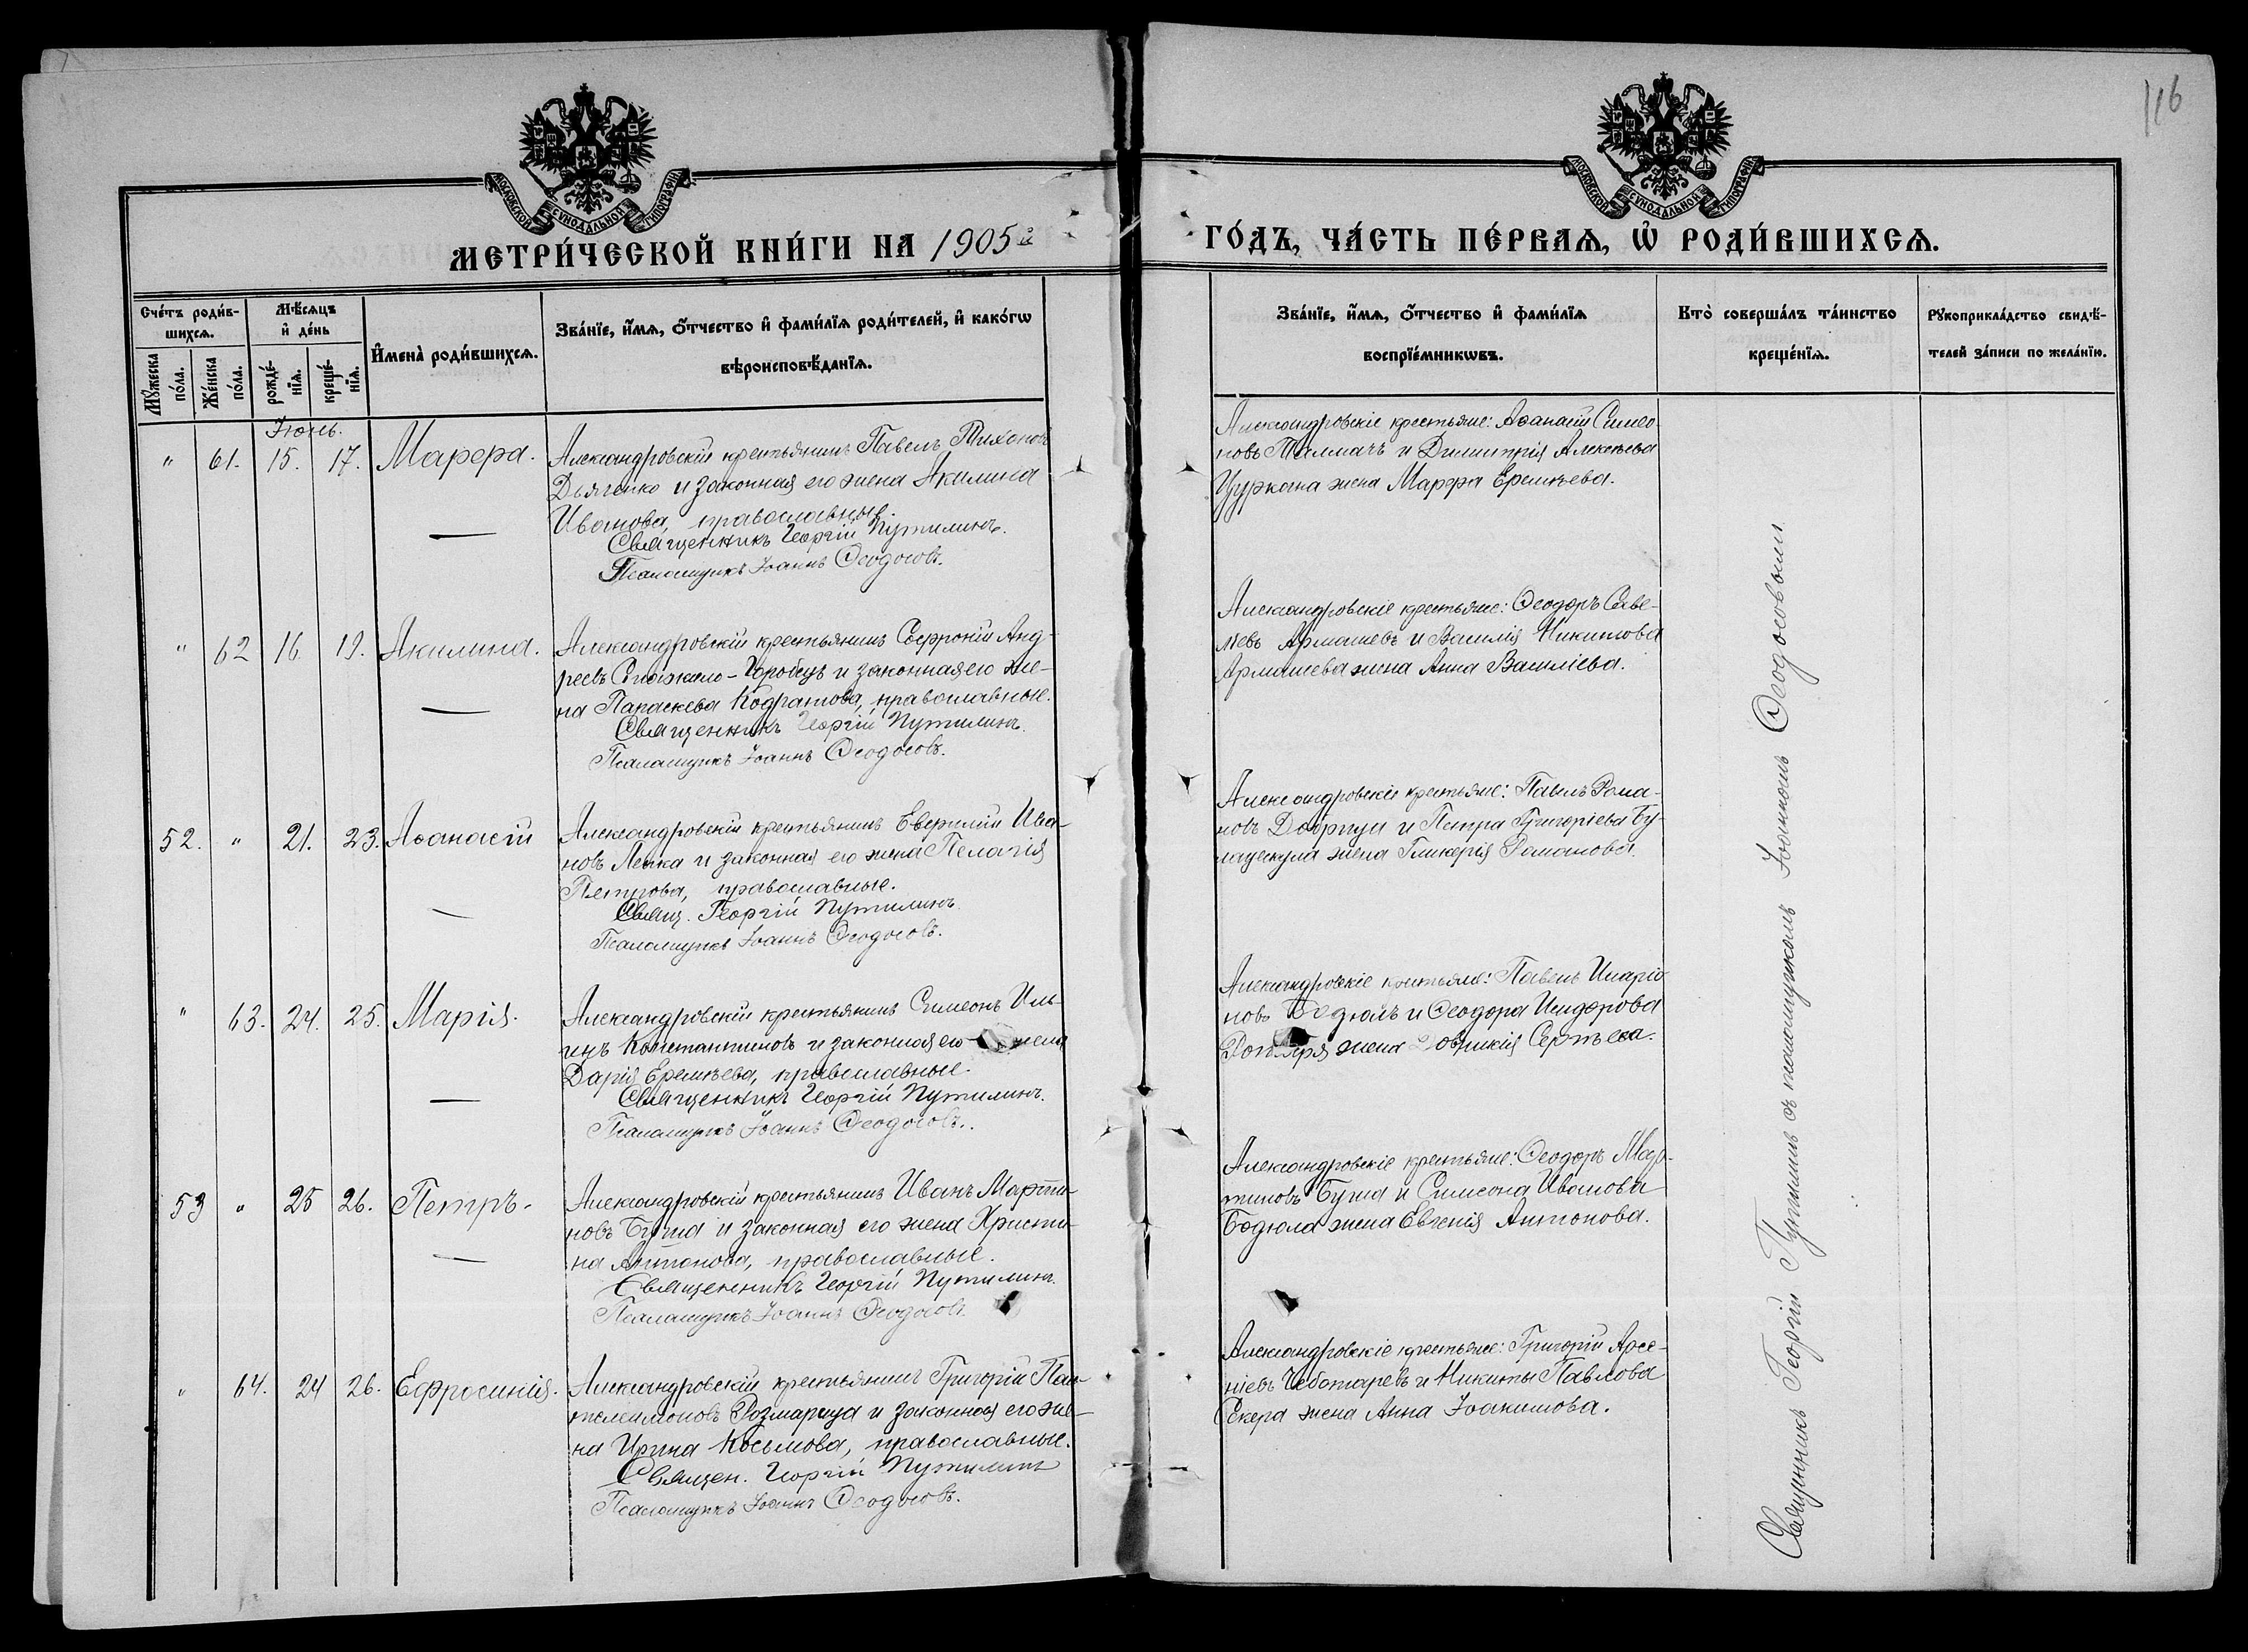 116
МОСКОВСКОЙ СУНОДАЛЬНОЙ ТИПОГРАФІИ
МОСКОВСКОЙ СУНОДАЛЬНОЙ ТИПОГРАФІИ
МЕТРИ́ЧЕСКОЙ КНИ́ГИ НА 1905й
ГО́ДЪ, ЧА́СТЬ ПЕ́РВАѦ, Ѡ РОДИ́ВШИХСѦ.
Сче́тъ роди́в-
шихсѧ.
Мꙋ́жеска
по́ла.
Же́нска
по́ла.
Мѣ́сѧцъ
и҆ де́нь
рожде́-
нїѧ.
креще́-
нїѧ.
И҆мена̀ роди́вшихсѧ.
Зва́нїе, и҆́мѧ, ѻ҆́тчество и҆ фами́лїѧ роди́телей, и҆ како́гѡ
вѣроисповѣ́данїѧ.
Зва́нїе, и҆́мѧ, ѻ҆́тчество и҆ фами́лїѧ
воспрїе́мникѡвъ.
Кто̀ соверша́лъ та́инство
креще́нїѧ.
Рꙋкоприкла́дство свидѣ́-
телей за́писи по жела́нїю.
Іюнь.
" 61. 15. 17. Марѳа.
Александровскій крестьянинъ Павелъ Тихоновъ
Дьяченко и законная его жена Акилина
Иванова, православные.
Священникъ Георгій Путилинъ.
Псаломщикъ Іоаннъ Ѳеодосовъ.
Александровскіе крестьяне: Аѳанасій Симео-
новъ Палмачъ и Димитрія Алексѣева
Цуркана жена Марѳа Еремѣева.
" 62 16 19. Акилина.
Александровскій крестьянинъ Софроній Анд-
реевъ Спажило-Горобецъ и законная его же-
на Параскева Кодратова, православные.
Священникъ Георгій Путилинъ.
Псаломщикъ Іоаннъ Ѳеодосовъ.
Александровскіе крестьяне: Ѳеодоръ Саве-
льевъ Армашевъ и Василія Никитова
Армашева жена Анна Василіева.
52. " 21. 23. Аѳанасій
Александровскій крестьянинъ Евфимій Ива-
новъ Лепка и законная его жена Пелагія
Петрова, православные.
Свящ. Георгій Путилинъ.
Псаломщикъ Іоаннъ Ѳеодосовъ.
Александровскіе крестьяне: Павелъ Рома-
новъ и Петра Григоріева Бу-
жена Гликерія Романова.
" 63. 24. 25. Марія.
Александровскій крестьянинъ Симеонъ Иль-
инъ Константиновъ и законная его жена
Дарія Еремѣева, православные.
Священникъ Георгій Путилинъ.
Псаломщикъ Іоаннъ Ѳеодосовъ.
Александровскіе крестьяне: Павелъ Иларіо-
новъ Бодюлъ и Ѳеодора Исидорова
жена Сергѣева.
53 " 25 26. Петръ.
Александровскій крестьянинъ Иванъ Марти-
новъ Буша и законная его жена Христи-
на Антонова, православные.
Священникъ Георгій Путилинъ.
Псаломщикъ Іоаннъ Ѳеодосовъ.
Александровскіе крестьяне: Ѳеодоръ Мар-
тиновъ Буша и Симеона Иванова
Бодюла жена Евгенія Антонова.
" 64. 24 26. Ефросинія.
Александровскій крестьянинъ Григорій Пан-
телеимоновъ Розмарица и законная его же-
на Ирина Косьмова, православные.
Священ. Георгій Путилинъ
Псаломщикъ Іоаннъ Ѳеодосовъ.
Александровскіе крестьяне: Григорій Арсе-
ніевъ Чеботаревъ и Никиты Павлова
Секера жена Анна Іоакимова.
Священникъ Георгій Путилинъ съ псаломщикомъ Іоанномъ Ѳеодосовымъ